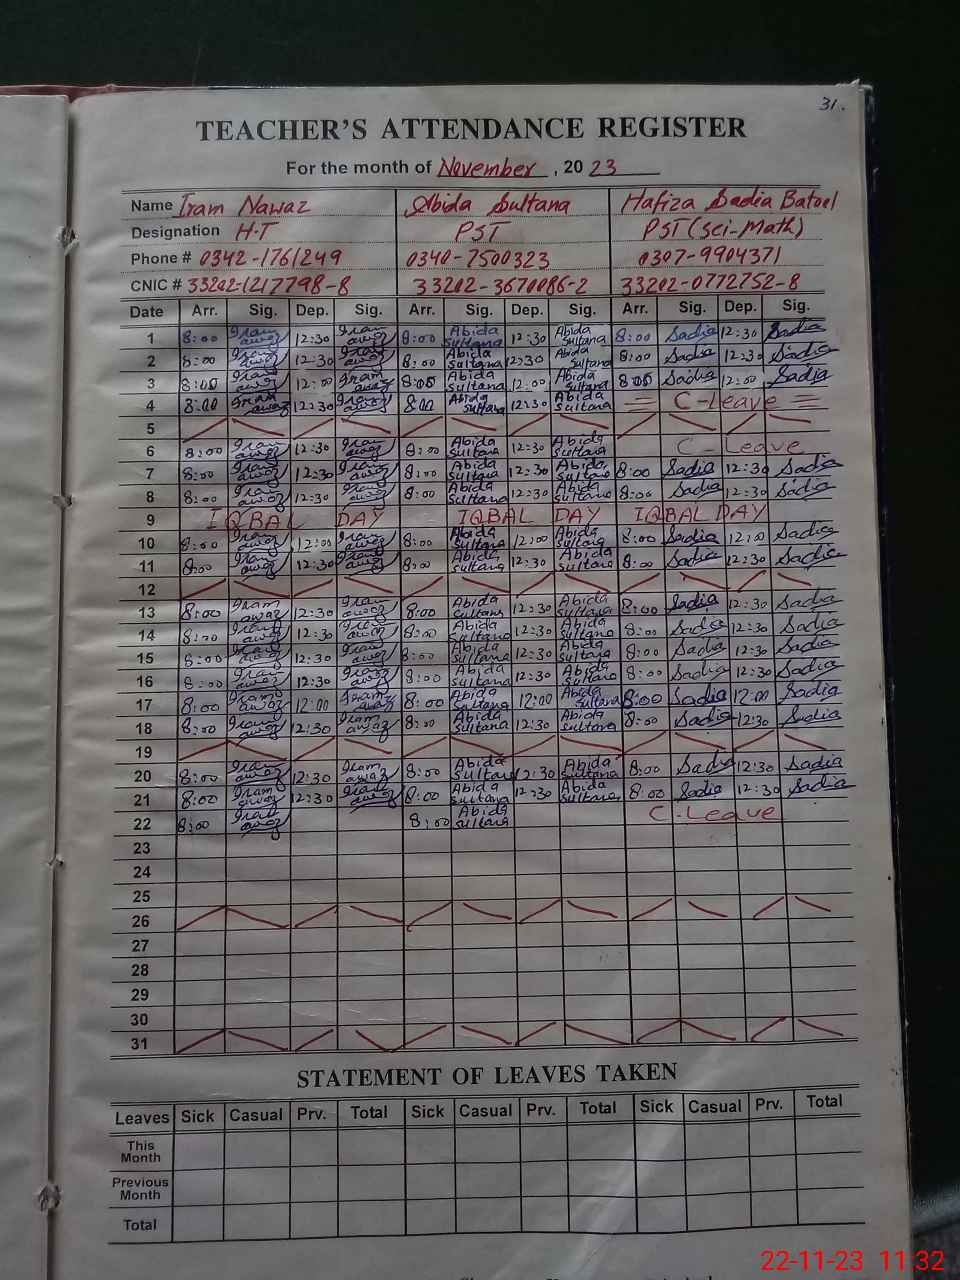 31.
TEACHER'S ATTENDANCE REGISTER
For the month of November, 2023
Name Iram Nawaz Abida Sultana Hafiza Sadia Batool
Designation H.T PST PST (Sci-Math)
Phone # 0342-1761249 0340-7500323 0307-9904371
CNIC # 33202-1217798-8 33202-3670086-2 33202-0772752-8
Date Arr. Sig. Dep. Sig. Arr. Sig. Dep. Sig. Arr. Sig. Dep. Sig.
1 8:00 Iram awaz 12:30 Iram awaz 8:00 Abida Sultana 12:30 Abida Sultana 8:00 Sadia 12:30 Sadia
2 8:00 Iram awaz 12:30 Iram awaz 8:00 Abida Sultana 12:30 Abida Sultana 8:00 Sadia 12:30 Sadia
3 8:00 Iram awaz 12:00 Iram awaz 8:00 Abida Sultana 12:00 Abida Sultana 8:00 Sadia 12:00 Sadia
4 8:00 Iram awaz 12:30 Iram awaz 8:00 Abida Sultana 12:30 Abida Sultana C-Leave
5
6 8:00 Iram awaz 12:30 Iram awaz 8:00 Abida Sultana 12:30 Abida Sultana C-Leave
7 8:00 Iram awaz 12:30 Iram awaz 8:00 Abida Sultana 12:30 Abida Sultana 8:00 Sadia 12:30 Sadia
8 8:00 Iram awaz 12:30 Iram awaz 8:00 Abida Sultana 12:30 Abida Sultana 8:00 Sadia 12:30 Sadia
9 IQBAL DAY IQBAL DAY IQBAL DAY
10 8:00 Iram awaz 12:00 Iram awaz 8:00 Abida Sultana 12:00 Abida Sultana 8:00 Sadia 12:00 Sadia
11 8:00 Iram awaz 12:30 Iram awaz 8:00 Abida Sultana 12:30 Abida Sultana 8:00 Sadia 12:30 Sadia
12
13 8:00 Iram awaz 12:30 Iram awaz 8:00 Abida Sultana 12:30 Abida Sultana 8:00 Sadia 12:30 Sadia
14 8:00 Iram awaz 12:30 Iram awaz 8:00 Abida Sultana 12:30 Abida Sultana 8:00 Sadia 12:30 Sadia
15 8:00 Iram awaz 12:30 Iram awaz 8:00 Abida Sultana 12:30 Abida Sultana 8:00 Sadia 12:30 Sadia
16 8:00 Iram awaz 12:30 Iram awaz 8:00 Abida Sultana 12:30 Abida Sultana 8:00 Sadia 12:30 Sadia
17 8:00 Iram awaz 12:00 Iram awaz 8:00 Abida Sultana 12:00 Abida Sultana 8:00 Sadia 12:00 Sadia
18 8:00 Iram awaz 12:30 Iram awaz 8:00 Abida Sultana 12:30 Abida Sultana 8:00 Sadia 12:30 Sadia
19
20 8:00 Iram awaz 12:30 Iram awaz 8:00 Abida Sultana 12:30 Abida Sultana 8:00 Sadia 12:30 Sadia
21 8:00 Iram awaz 12:30 Iram awaz 8:00 Abida Sultana 12:30 Abida Sultana 8:00 Sadia 12:30 Sadia
22 8:00 Iram awaz 8:00 Abida Sultana C-Leave
23
24
25
26
27
28
29
30
31
STATEMENT OF LEAVES TAKEN
Leaves Sick Casual Prv. Total Sick Casual Prv. Total Sick Casual Prv. Total
This Month
Previous Month
Total
22-11-23 11:32